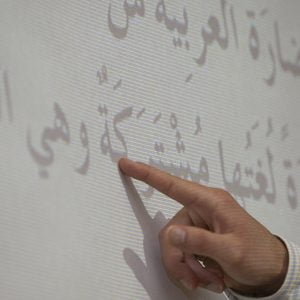 ضارَة العربيّة
لُغَتُها مُشْتَرَكَةٌ وهي